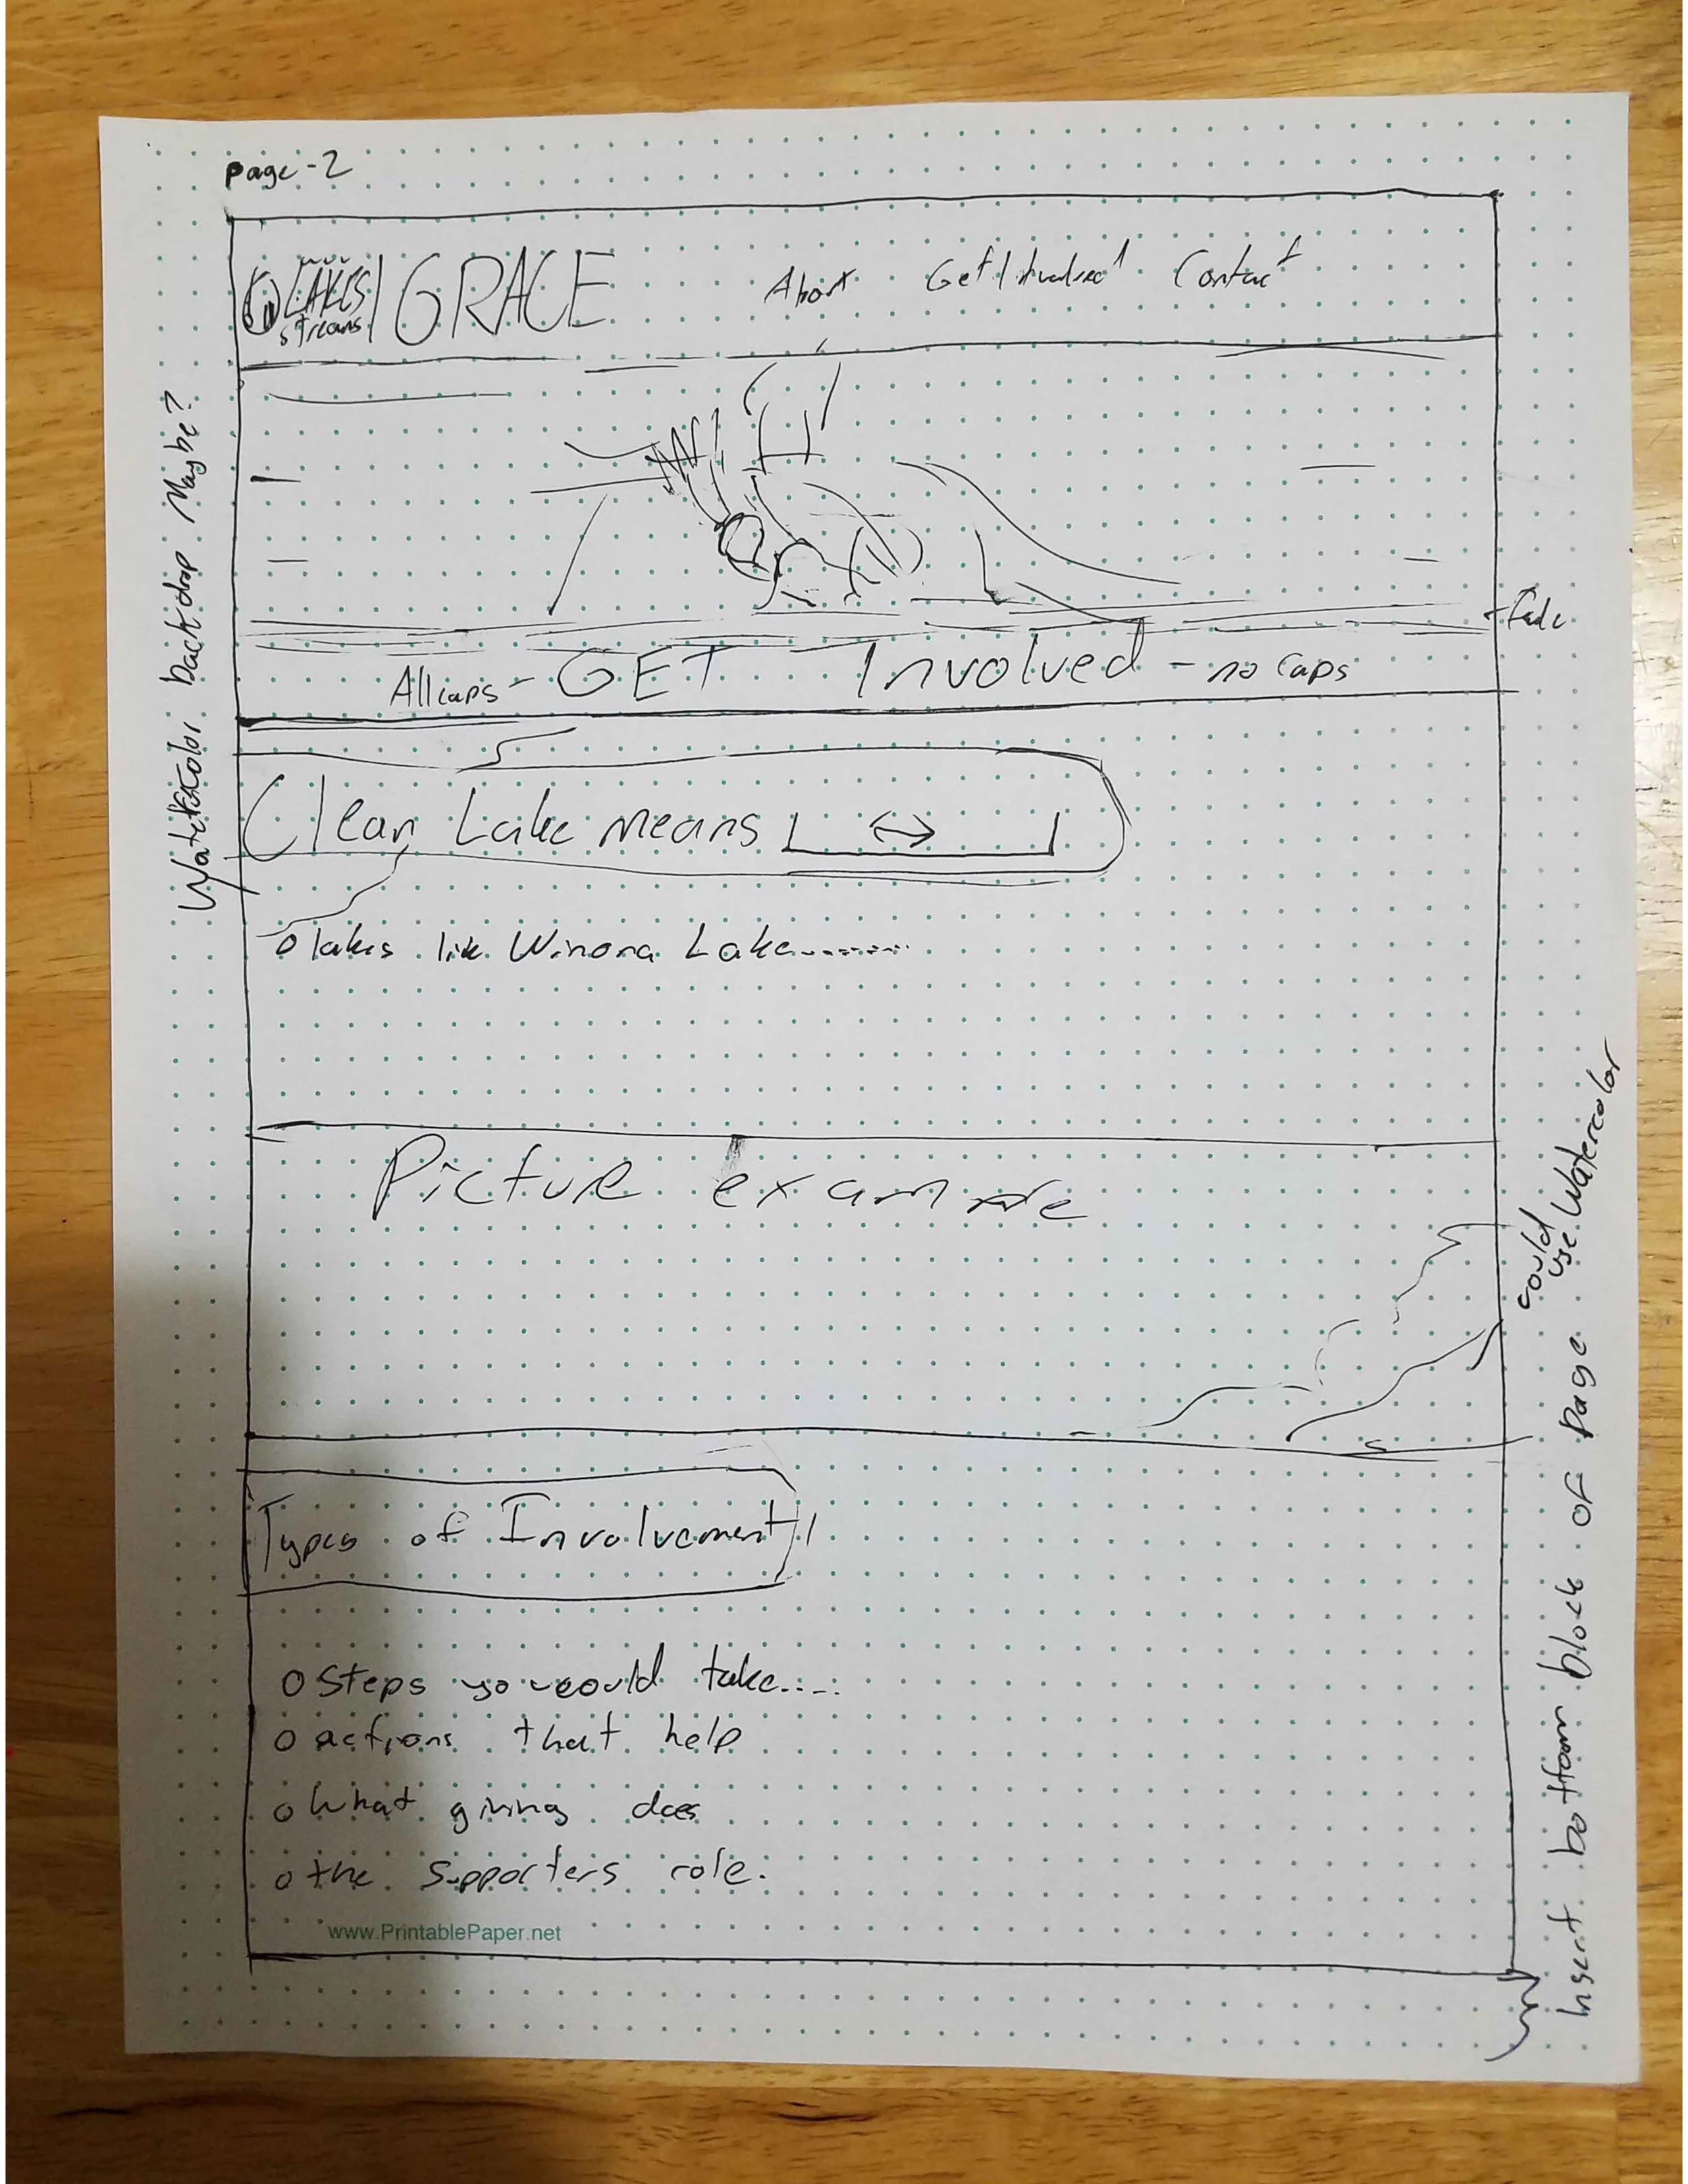 Page-2
LAKES
streams
GRACE
About Get Involved Contact
Watercolor backdrop Maybe?
Fade
All caps - GET Involved - no caps
Clean Lake means
lakes like Winona Lake........
Picture example
could
use Watercolor
Types of Involvement
Steps you could take.....
actions that help
What giving does
the supporters role.
www.PrintablePaper.net
Insert bottom block of page